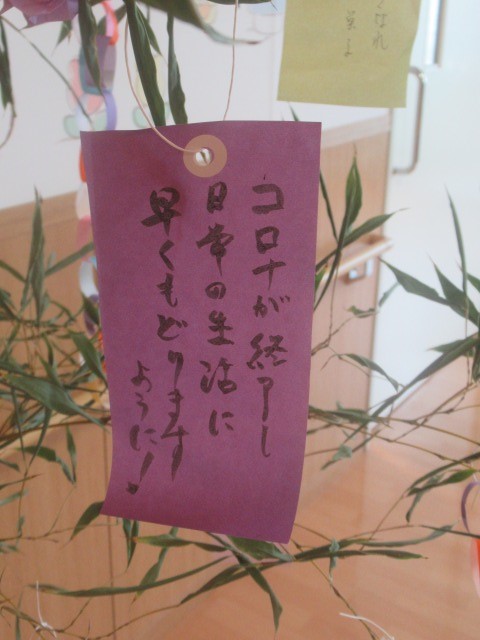 コロナが終了し
日常の生活に
早くもどります
ように!